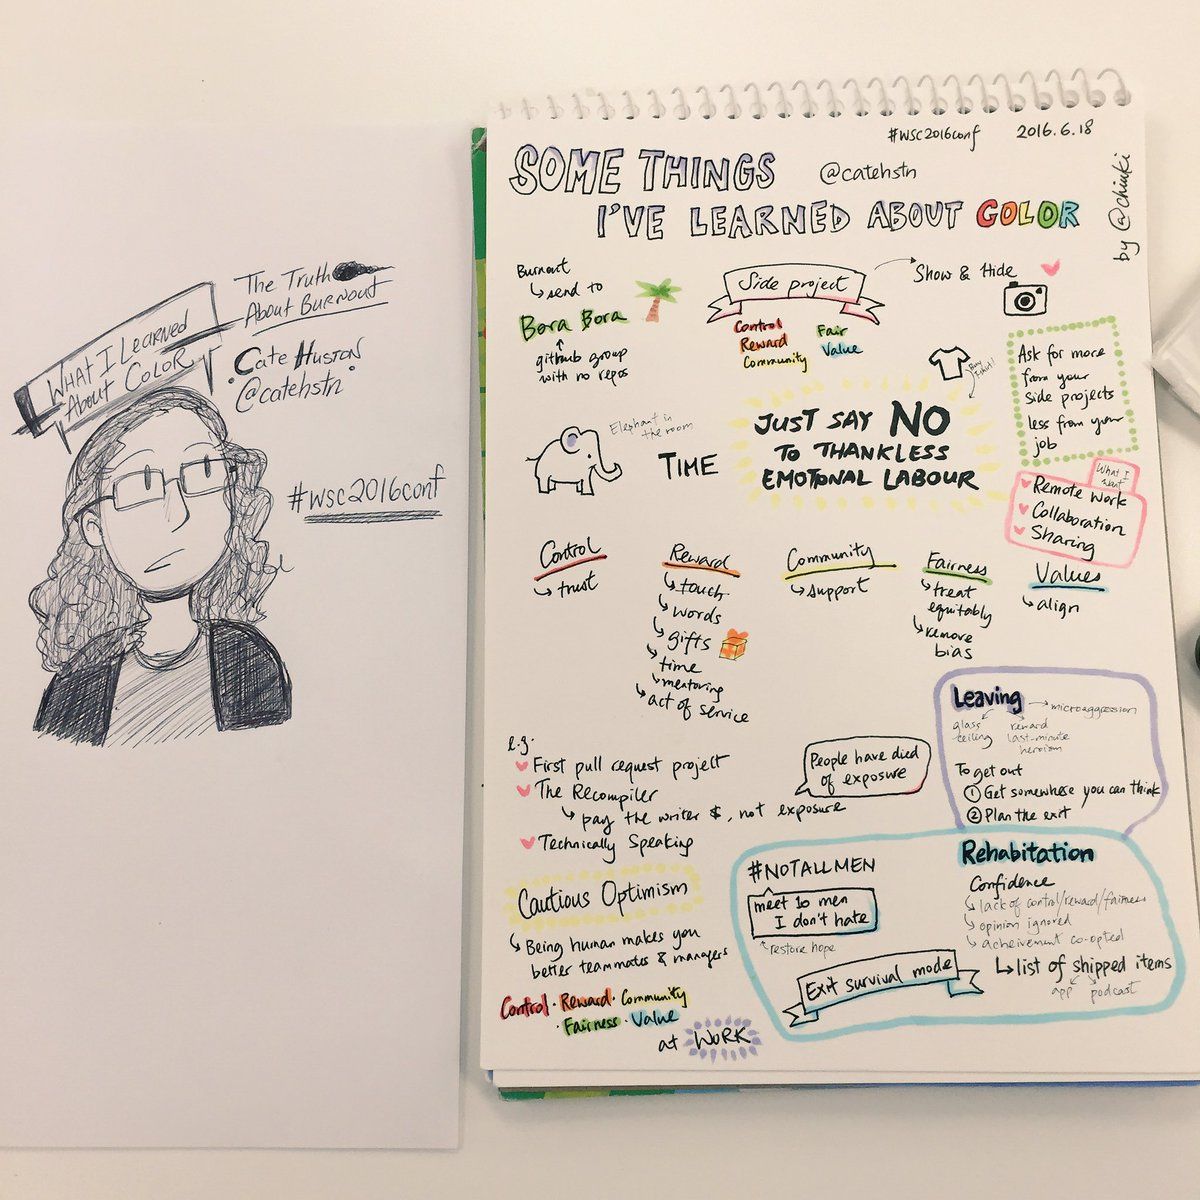 The Truth
About Burnout
What I Learned
About Color
Cate Huston
@catehstn
#wsc2016conf
#wsc2016conf 2016.6.18
SOME THINGS @catehstn
I'VE LEARNED ABOUT COLOR
by @chiuki
Burnout
send to
Bora Bora
github group
with no repos
Side project
Control
Reward
Community
Fair
Value
Show & Hide
Ask for more
from your
side projects
less from your
job
Elephant in
the room
TIME
JUST SAY NO
TO THANKLESS
EMOTIONAL LABOUR
What I
want
Remote work
Collaboration
Sharing
Control
trust
Reward
touch
words
gifts
time
mentoring
act of service
Community
support
Fairness
treat
equitably
remove
bias
Values
align
e.g.
First pull request project
The Recompiler
pay the writer $, not exposure
Technically Speaking
People have died
of exposure
Leaving
microaggression
glass
ceiling
reward
last-minute
heroism
To get out
1 Get somewhere you can think
2 Plan the exit
Cautious Optimism
Being human makes you
better teammates & managers
Control · Reward · Community
· Fairness · Value
at WORK
#NOTALLMEN
meet 10 men
I don't hate
restore hope
Exit survival mode
Rehabitation
Confidence
lack of control/reward/fairness
opinion ignored
acheivement co-opted
list of shipped items
app podcast